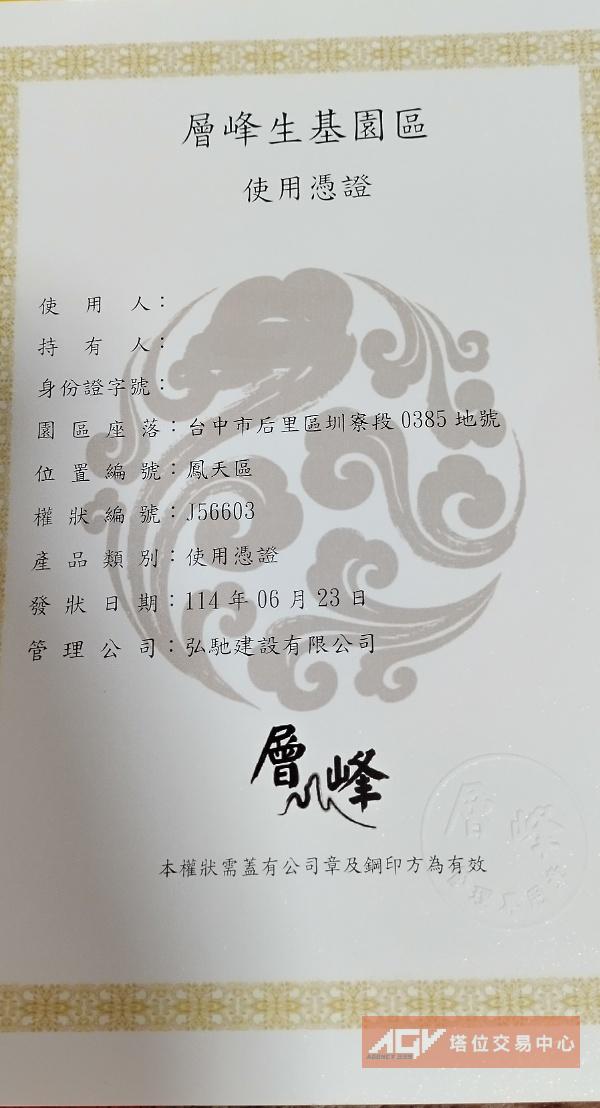 層峰生基園區
使用憑證
使用人：
持有人：
身份證字號：
園區座落：台中市后里區圳寮段 0385 地號
位置編號：鳳天區
權狀編號：J56603
產品類別：使用憑證
發狀日期：114 年 06 月 23 日
管理公司：弘馳建設有限公司
層峰
層峰
本權狀需蓋有公司章及鋼印方為有效
AGV 塔位交易中心